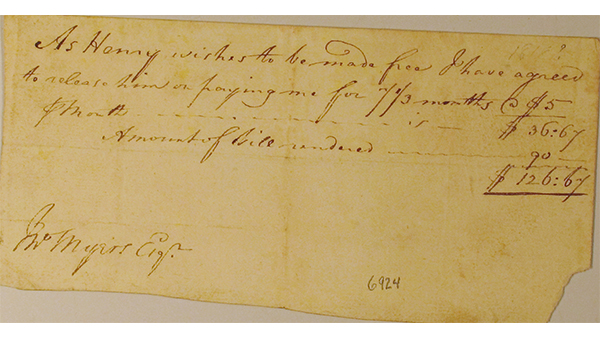 As Henry wishes to be made free I have agreed
to release him on paying me for 7 1/3 months @ $5
⅌ Month - - - - - - - is - $ 36:67
Amount of Bill rendered - - - - 90 -
$ 126:67
Jno Myers Esqr.
6924